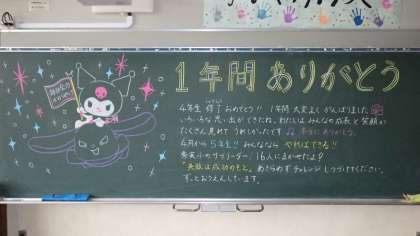 1年間ありがとう
4年生 修了 おめでとう!! 1年間 大変よく がんばりました
いろいろな思い出ができたね。わたしは みんなの成長と笑顔が
たくさん見れて うれしかったです♫ 本当にありがとう。
4月から 5年生!! みんななら やればできる!!
16人にまかせたよ?
"失敗は成功のもと" あきらめず チャレンジしつづけてください。
ずっとおうえんしています。